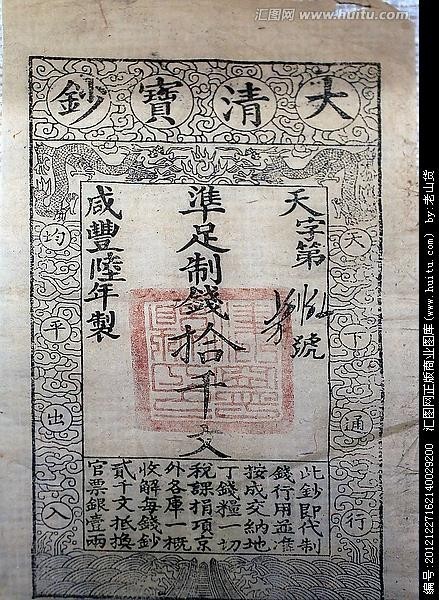 汇图网
www.huitu.com
大清寶鈔
天字第
號
準足制錢拾千文
咸豐陸年製
天下通行
均平出入
此鈔即代制
錢行用並准
按成交納地
丁錢糧一切
稅課捐項京
外各庫一概
收解每錢鈔
貳千文抵換
官票銀壹兩
编号:20121227162140029200 汇图网正版商业图库 (www.huitu.com) by:老山货